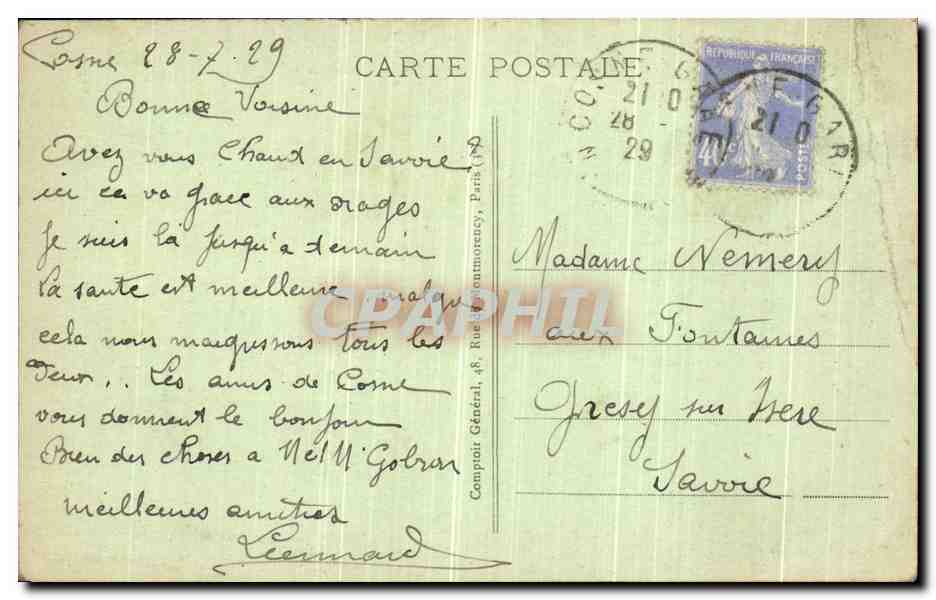 Cosne 28-7-29
CARTE POSTALE
Bonne Voisine
Avez vous Chaud en Savoie?
ici ca va grace aux orages
Je suis là Jusqu'a demain
la santé est meilleure malgré
cela nous maigrissons tous les
Deux.. Les amis de Cosne
vous donnent le bonjour
Bien des choses a M et M Gobron
meilleures amitiés
Leennard
Comptoir Général, 48, Rue de Montmorency, Paris
RÉPUBLIQUE FRANÇAISE
40c
POSTES
21 0
28 -
29
NE GARE
21 0
Madame Nemery
aux Fontaines
Gresy sur Isere
Savoie
CPAPHIL